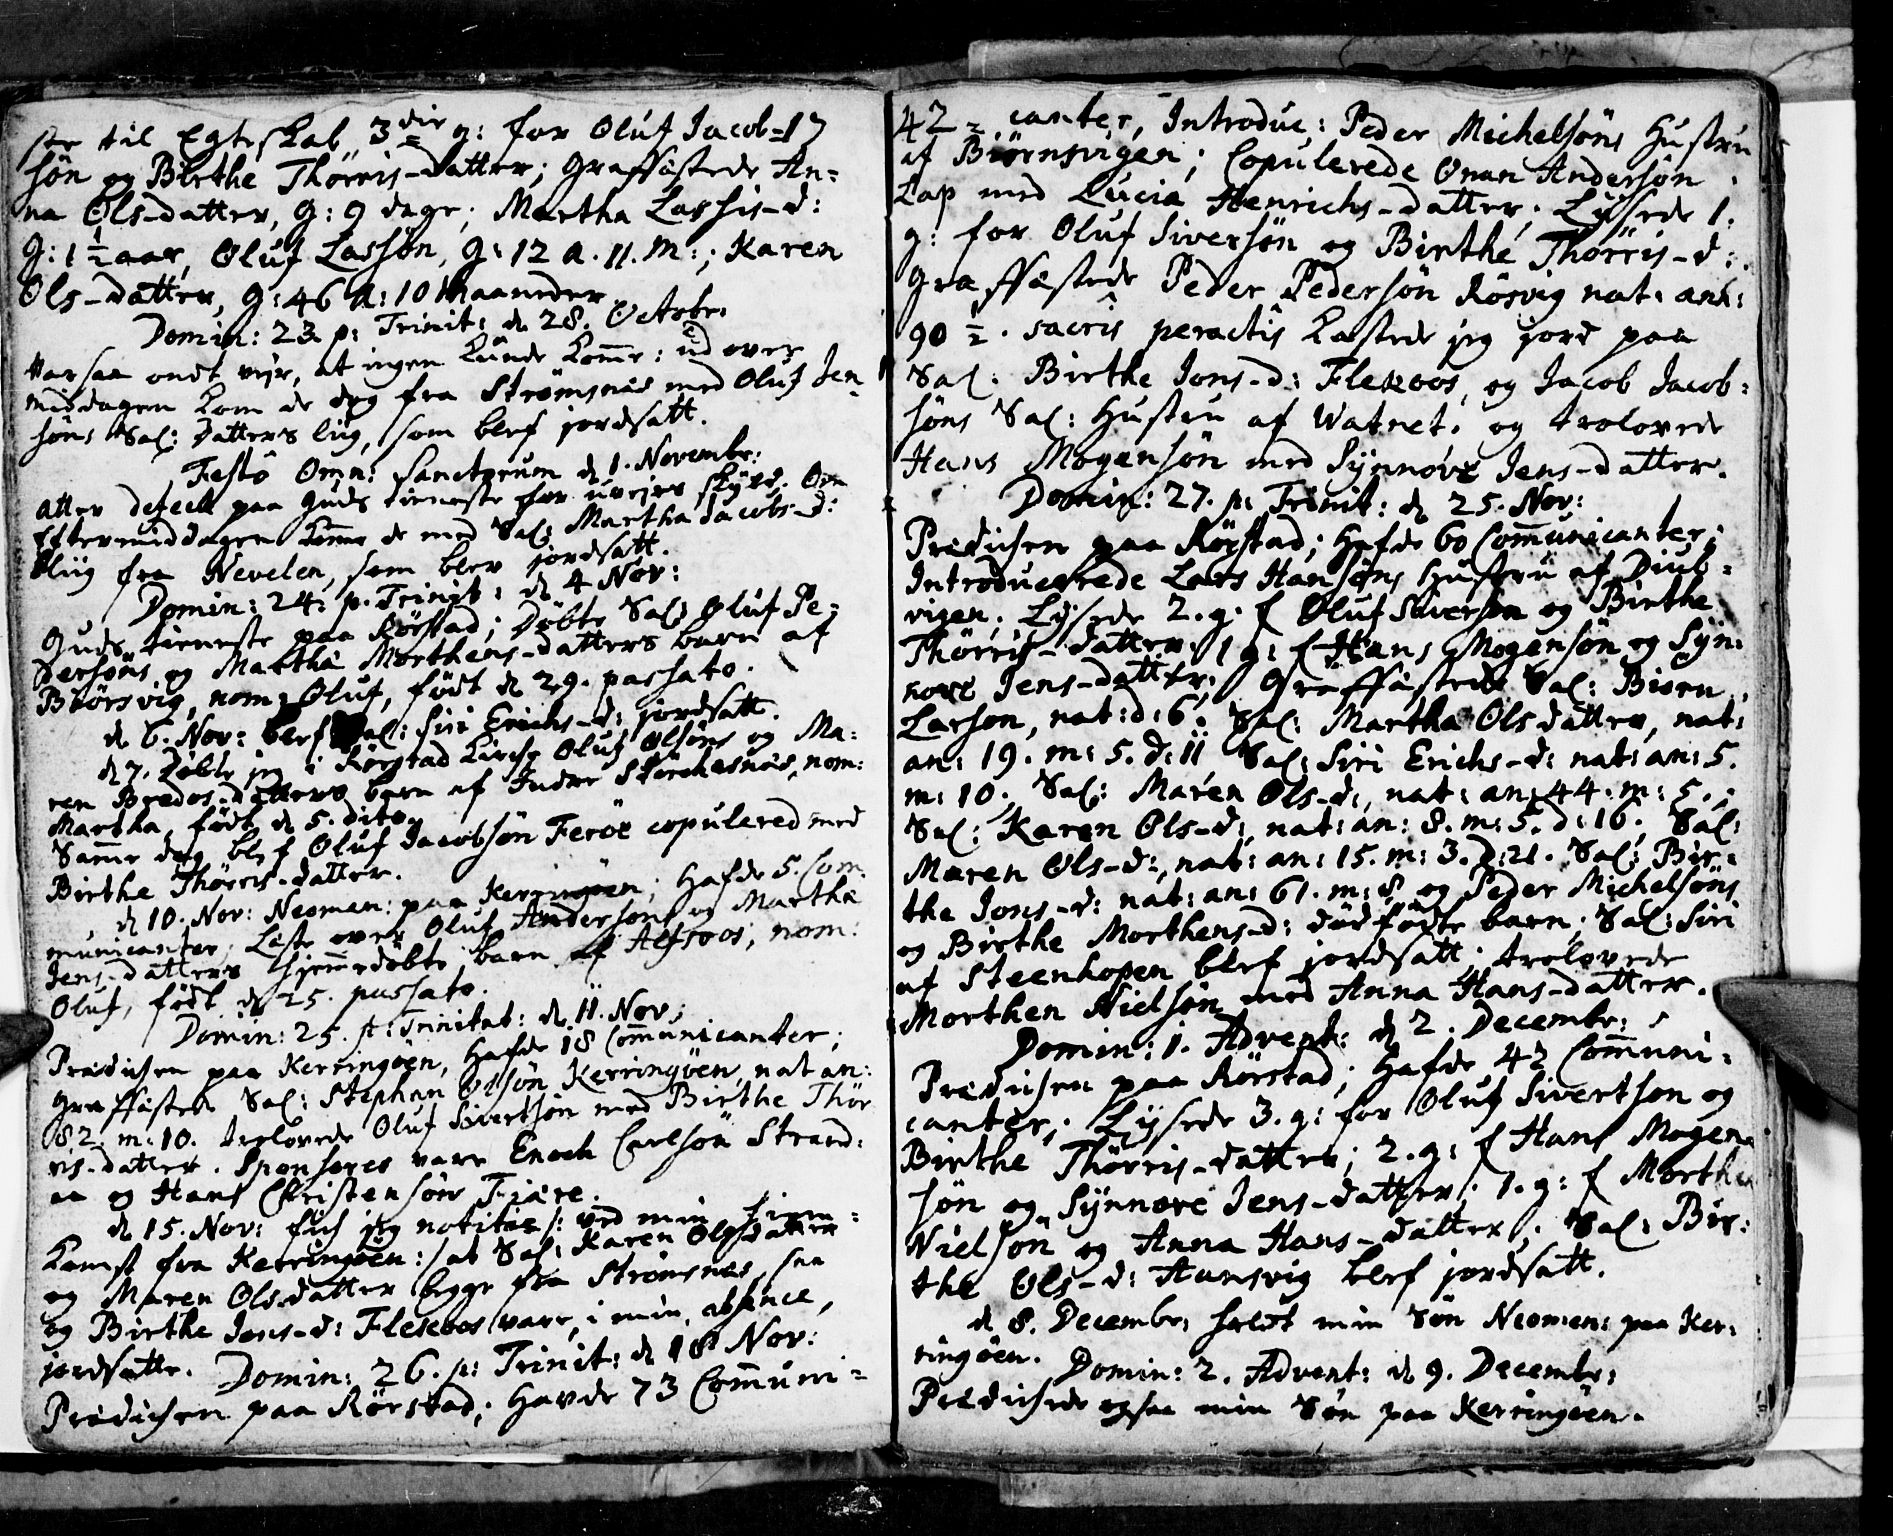 ste til Egteskab 3die g: for Oluf Jacob= 17
søn og Birthe Thørris-datter; Graffæstede An=
na Ols-datter, g: 9 dage; Martha Lassis-d:
g: 1 1/2 aar, Oluf Lassøn, g: 12 a. 11. m:; Karen
Ols-datter, g: 46 a: 10 Maaneder
Domin: 23 p: Trinit: d. 28. Octobr:
Var saa ondt vejr, at ingen kunde komme: ud over
middagen kom de dog fra Strømsnæs med Oluf Jen
søns Sal: Datters liig, som blef jordsatt.
Festô Omn: Sanctorum d. 1. Novembr:
atter defect paa Guds tieneste for uveirs skyld. Om
Eftermiddagen komme de med Sal: Martha Jacobs-d:
Liig fra Nevelen, som blev jordsatt.
Domin: 24: p. Trinit: d. 4 Nov:
Guds tieneste paa Rørstad; Døbte Sal: Oluf Pe=
dersøns og Martha Morthens-datters barn af
Børsvig, nom: Oluf, født d. 29. passato.
d. 6. Nov: blef Sal: Siri Erichs-d: jordsatt.
d. 7. Døbte jeg i Rørstad Kirche Oluf Olsøns og Ma=
ren Bredes-datters barn af Indre Storchesnæs, nom:
Martha, født d. 5. dito.
Samme dag blef Oluf Jacobsøn Ferøe copulered med
Birthe Thørris-datter.
d. 10. Nov: Neomen: paa Kerringøen; Hafde 5. Com
municanter; Læste over Oluf Andersøns og Martha
Jens-datters hjemmedøbte barn af Alfsoos, nom:
Oluf, født d. 25. passato.
Domin: 25. p: Trinitat: d. 11. Nov:
Prædichen paa Kerringøen, Hafde 18 Communicanter;
Graffæstede Sal: Stephan Olsøn Kerringøen, nat an:
82. m: 10. trolovede Oluf Sivertsøn med Birthe Thør
ris-datter. Sponsores vare Enoch Carlsøn Strand=
aa og Hans Christensøn Fiære.
d. 15. Nov: fich jeg notitie /: ved min Hiem=
komst fra Kerringøen :/ at Sal: Karen Olsdatter
og Maren Olsdatter begge fra Strømsnæs, saa
og Birthe Jons-d: Flekoos vare, i min absence,
jordsatte. Domin: 26. p: Trinit: d. 18 Nov:
Prædichen paa Rørstad; Havde 73 Communi=
42= canter, Introduc: Peder Michelsøns Hustru
af Biørnsvigen; Copulerede Onun Andersøn
Lap med Lucia Henrichs-datter; Lyssede 1.
g: for Oluf Siversøn og Birthe Thørris-d:
Graffæstede Peder Pedersøn Røsvig nat: an:
90 1/2. sacris peractis kastede jeg jord paa
Sal: Birthe Jons-d: Flekoos, og Jacob Jacob=
søns Sal: Hustru af Watnet. og trolovede
Hans Mogensøn med Synnove Jens-datter.
Domin: 27. p: Trinit: d. 25. Nov:
Prædichen paa Rørstad; Hafde 60 Communicanter;
Introducerede Lars Hansøns Hustru af Diub=
vigen. Lyssede 2. g. f Oluf Siversøn og Birthe
Thørris-datter. 1 g: f Hans Mogensøn og Syn:
nove Jens-datter; Graffæstede Sal: Biørn
Larsøn, nat: d: 6. Sal: Martha Olsdatter, nat:
an: 19. m: 5. d: 11 Sal: Siri Erichs-d: nat: an: 5.
m: 10. Sal: Maren Ols-d:, nat: an: 44. m: 5.;
Sal: Karen Ols-d:, nat: an: 8. m: 5. d: 16; Sal:
Maren Ols-d:, nat: an: 15. m: 3. d: 21. Sal: Bir=
the Jons-d: nat: an: 61. m: 8 og Peder Michelsøns
og Birthe Morthens-d: dødfødte barn; Sal: Siri
af Steenhopen blef jordsatt; trolovede
Morthen Nielsøn med Anna Hans-datter.
Domin: 1. Advent: d. 2. Decembr:
Prædichen paa Rørstad; Hafde 42 Communi=
canter; Lyssede 3. g: for Oluf Sivertsøn og
Birthe Thørris-datter; 2. g: f Hans Mogen
søn og Synnove Jens-datter; 1. g: f Morthen
Nielsøn og Anna Hans-datter; Sal: Bir:
the Ols-d: Hansvig blef jordsatt.
d. 8. Decembr: holdt min Søn Neomen: paa Ker:
ringøen. Domin: 2. Advent: d. 9. Decembr:
Prædichede ogsaa min Søn paa Kerringøen.